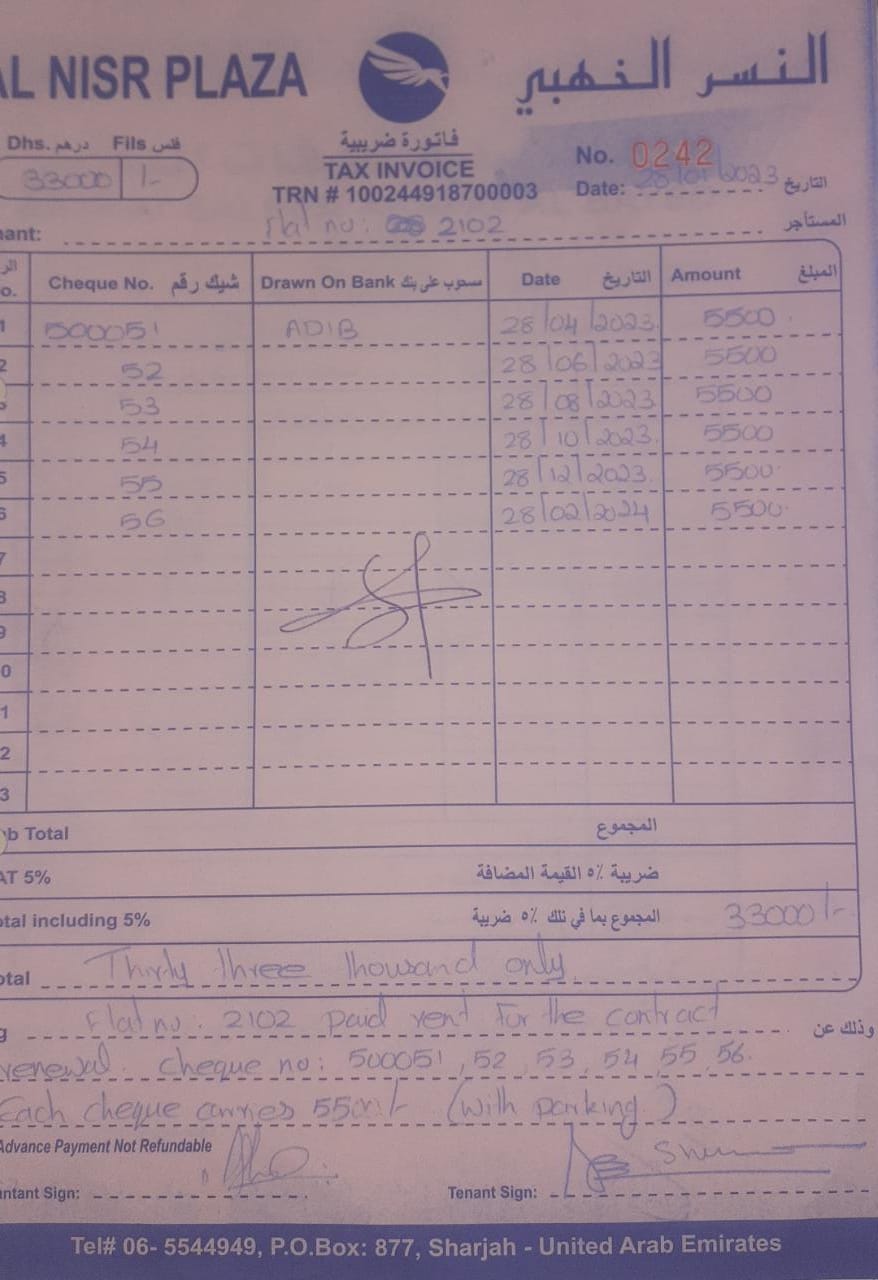 AL NISR PLAZA النسر الذهبي
Dhs. درهم Fils فلس
33000 /-
فاتورة ضريبية
TAX INVOICE
TRN # 100244918700003
No. 0242
Date: 28/01/2023 التاريخ
nant: Flat no: 2102 المستأجر
o. Cheque No. شيك رقم Drawn On Bank مسحوب على بنك Date التاريخ Amount المبلغ
1 500051 ADIB 28/04/2023 5500
2 52 28/06/2023 5500
3 53 28/08/2023 5500
4 54 28/10/2023 5500
5 55 28/12/2023 5500
6 56 28/02/2024 5500
7
8
9
0
1
2
3
ub Total المجموع
AT 5% ضريبة ٥٪ القيمة المضافة
otal including 5% المجموع بما في ذلك ٥٪ ضريبة 33000/-
otal Thirty three thousand only
g Flat no: 2102 paid rent for the contract وذلك عن
renewal. cheque no: 500051, 52, 53, 54, 55, 56.
Each cheque carries 5500/- (with parking)
Advance Payment Not Refundable
untant Sign: Tenant Sign:
Tel# 06- 5544949, P.O.Box: 877, Sharjah - United Arab Emirates